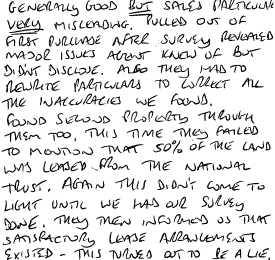 GENERALLY GOOD BUT SALES PARTICULARS
VERY MISLEADING. PULLED OUT OF
FIRST PURCHASE AFTER SURVEY REVEALED
MAJOR ISSUES AGENT KNEW OF BUT
DIDN'T DISCLOSE. ALSO THEY HAD TO
REWRITE PARTICULARS TO CORRECT ALL
THE INACCURACIES WE FOUND.
FOUND SECOND PROPERTY THROUGH
THEM TOO. THIS TIME THEY FAILED
TO MENTION THAT 50% OF THE LAND
WAS LEASED FROM THE NATIONAL
TRUST. AGAIN THIS DIDN'T COME TO
LIGHT UNTIL WE HAD OUR SURVEY
DONE. THEY THEN INFORMED US THAT
SATISFACTORY LEASE ARRANGEMENTS
EXISTED - THIS TURNED OUT TO BE A LIE.